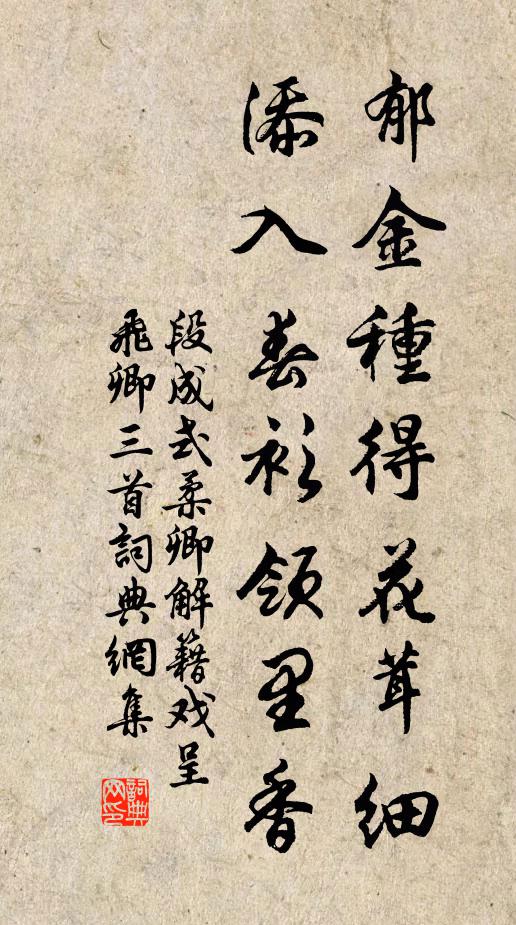 郁金種得花茸細
添入春衫領里香
段成式柔卿解籍戏呈
飛卿三首詞典網集
詞典网印